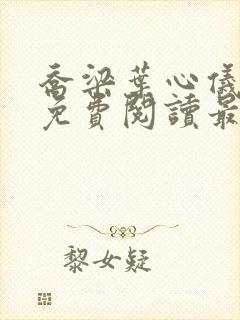 喬梁葉心儀
免費閱讀最
黎女疑